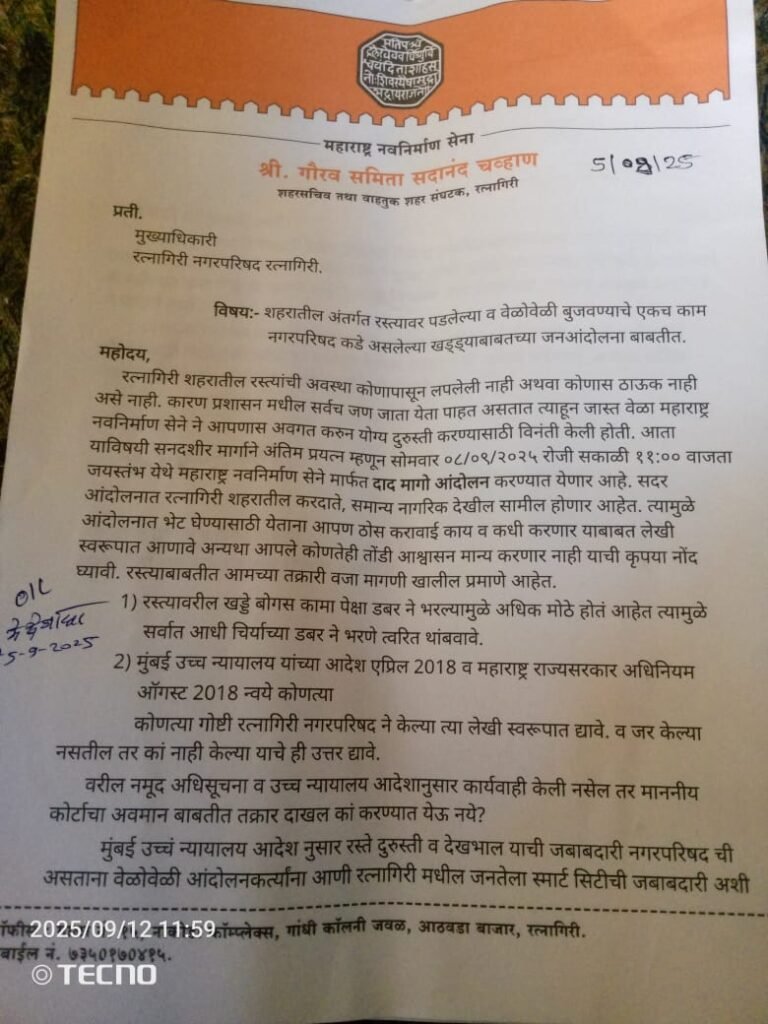 महाराष्ट्र नवनिर्माण सेना
श्री. गौरव समिता सदानंद चव्हाण
5/09/25
शहरसचिव तथा वाहतुक शहर संघटक, रत्नागिरी
प्रती.
मुख्याधिकारी
रत्नागिरी नगरपरिषद रत्नागिरी.
विषय:- शहरातील अंतर्गत रस्त्यावर पडलेल्या व वेळोवेळी बुजवण्याचे एकच काम
नगरपरिषद कडे असलेल्या खड्ड्याबाबतच्या जनआंदोलना बाबतीत.
महोदय,
रत्नागिरी शहरातील रस्त्यांची अवस्था कोणापासून लपलेली नाही अथवा कोणास ठाऊक नाही
असे नाही. कारण प्रशासन मधील सर्वच जण जाता येता पाहत असतात त्याहून जास्त वेळा महाराष्ट्र
नवनिर्माण सेने ने आपणास अवगत करुन योग्य दुरुस्ती करण्यासाठी विनंती केली होती. आता
याविषयी सनदशीर मार्गाने अंतिम प्रयत्न म्हणून सोमवार ०८/०९/२०२५ रोजी सकाळी ११:०० वाजता
जयस्तंभ येथे महाराष्ट्र नवनिर्माण सेने मार्फत दाद मागो आंदोलन करण्यात येणार आहे. सदर
आंदोलनात रत्नागिरी शहरातील करदाते, समान्य नागरिक देखील सामील होणार आहेत. त्यामुळे
आंदोलनात भेट घेण्यासाठी येताना आपण ठोस करावाई काय व कधी करणार याबाबत लेखी
स्वरूपात आणावे अन्यथा आपले कोणतेही तोंडी आश्वासन मान्य करणार नाही याची कृपया नोंद
घ्यावी. रस्त्याबाबतीत आमच्या तक्रारी वजा मागणी खालील प्रमाणे आहेत.
1) रस्त्यावरील खड्डे बोगस कामा पेक्षा डबर ने भरल्यामुळे अधिक मोठे होतं आहेत त्यामुळे
सर्वात आधी चिर्याच्या डबर ने भरणे त्वरित थांबवावे.
O/C
5-9-2025
2) मुंबई उच्च न्यायालय यांच्या आदेश एप्रिल 2018 व महाराष्ट्र राज्यसरकार अधिनियम
ऑगस्ट 2018 न्वये कोणत्या
कोणत्या गोष्टी रत्नागिरी नगरपरिषद ने केल्या त्या लेखी स्वरूपात द्यावे. व जर केल्या
नसतील तर कां नाही केल्या याचे ही उत्तर द्यावे.
वरील नमूद अधिसूचना व उच्च न्यायालय आदेशानुसार कार्यवाही केली नसेल तर माननीय
कोर्टाचा अवमान बाबतीत तक्रार दाखल कां करण्यात येऊ नये?
मुंबई उच्चं न्यायालय आदेश नुसार रस्ते दुरुस्ती व देखभाल याची जबाबदारी नगरपरिषद ची
असताना वेळोवेळी आंदोलनकर्त्यांना आणी रत्नागिरी मधील जनतेला स्मार्ट सिटीची जबाबदारी अशी
कॉम्प्लेक्स, गांधी कॉलनी जवळ, आठवडा बाजार, रत्नागिरी.
बाईल नं. ७३५०१७०४१५.
2025/09/12 11:59
TECNO